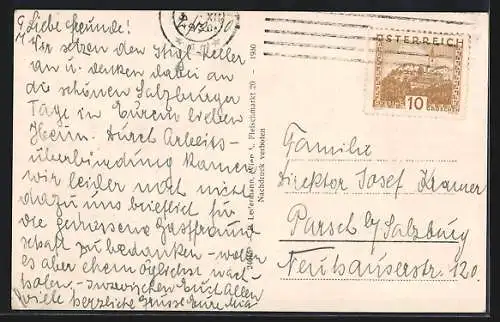 Liebe Freunde!
Wir sitzen den Stigl-Keller
an u. denken dabei an
die schönen Salzburger
Tage in Eurem lieben
Heim. Durch Arbeits-
überbindung kamen
wir leider noch nicht
dazu uns brieflich für
die genossene Gastfreund
schaft zu bedanken - wollen
es aber ehemöglichst nach-
holen, - inzwischen Euch Allen
viele herzliche Grüsse Eure Mia
Wien 1., Fleischmarkt 20 - 1930
Nachdruck verboten
ÖSTERREICH
10
Familie
Direktor Josef Kramer
Parsch b/ Salzburg
Neuhauserstr. 120.